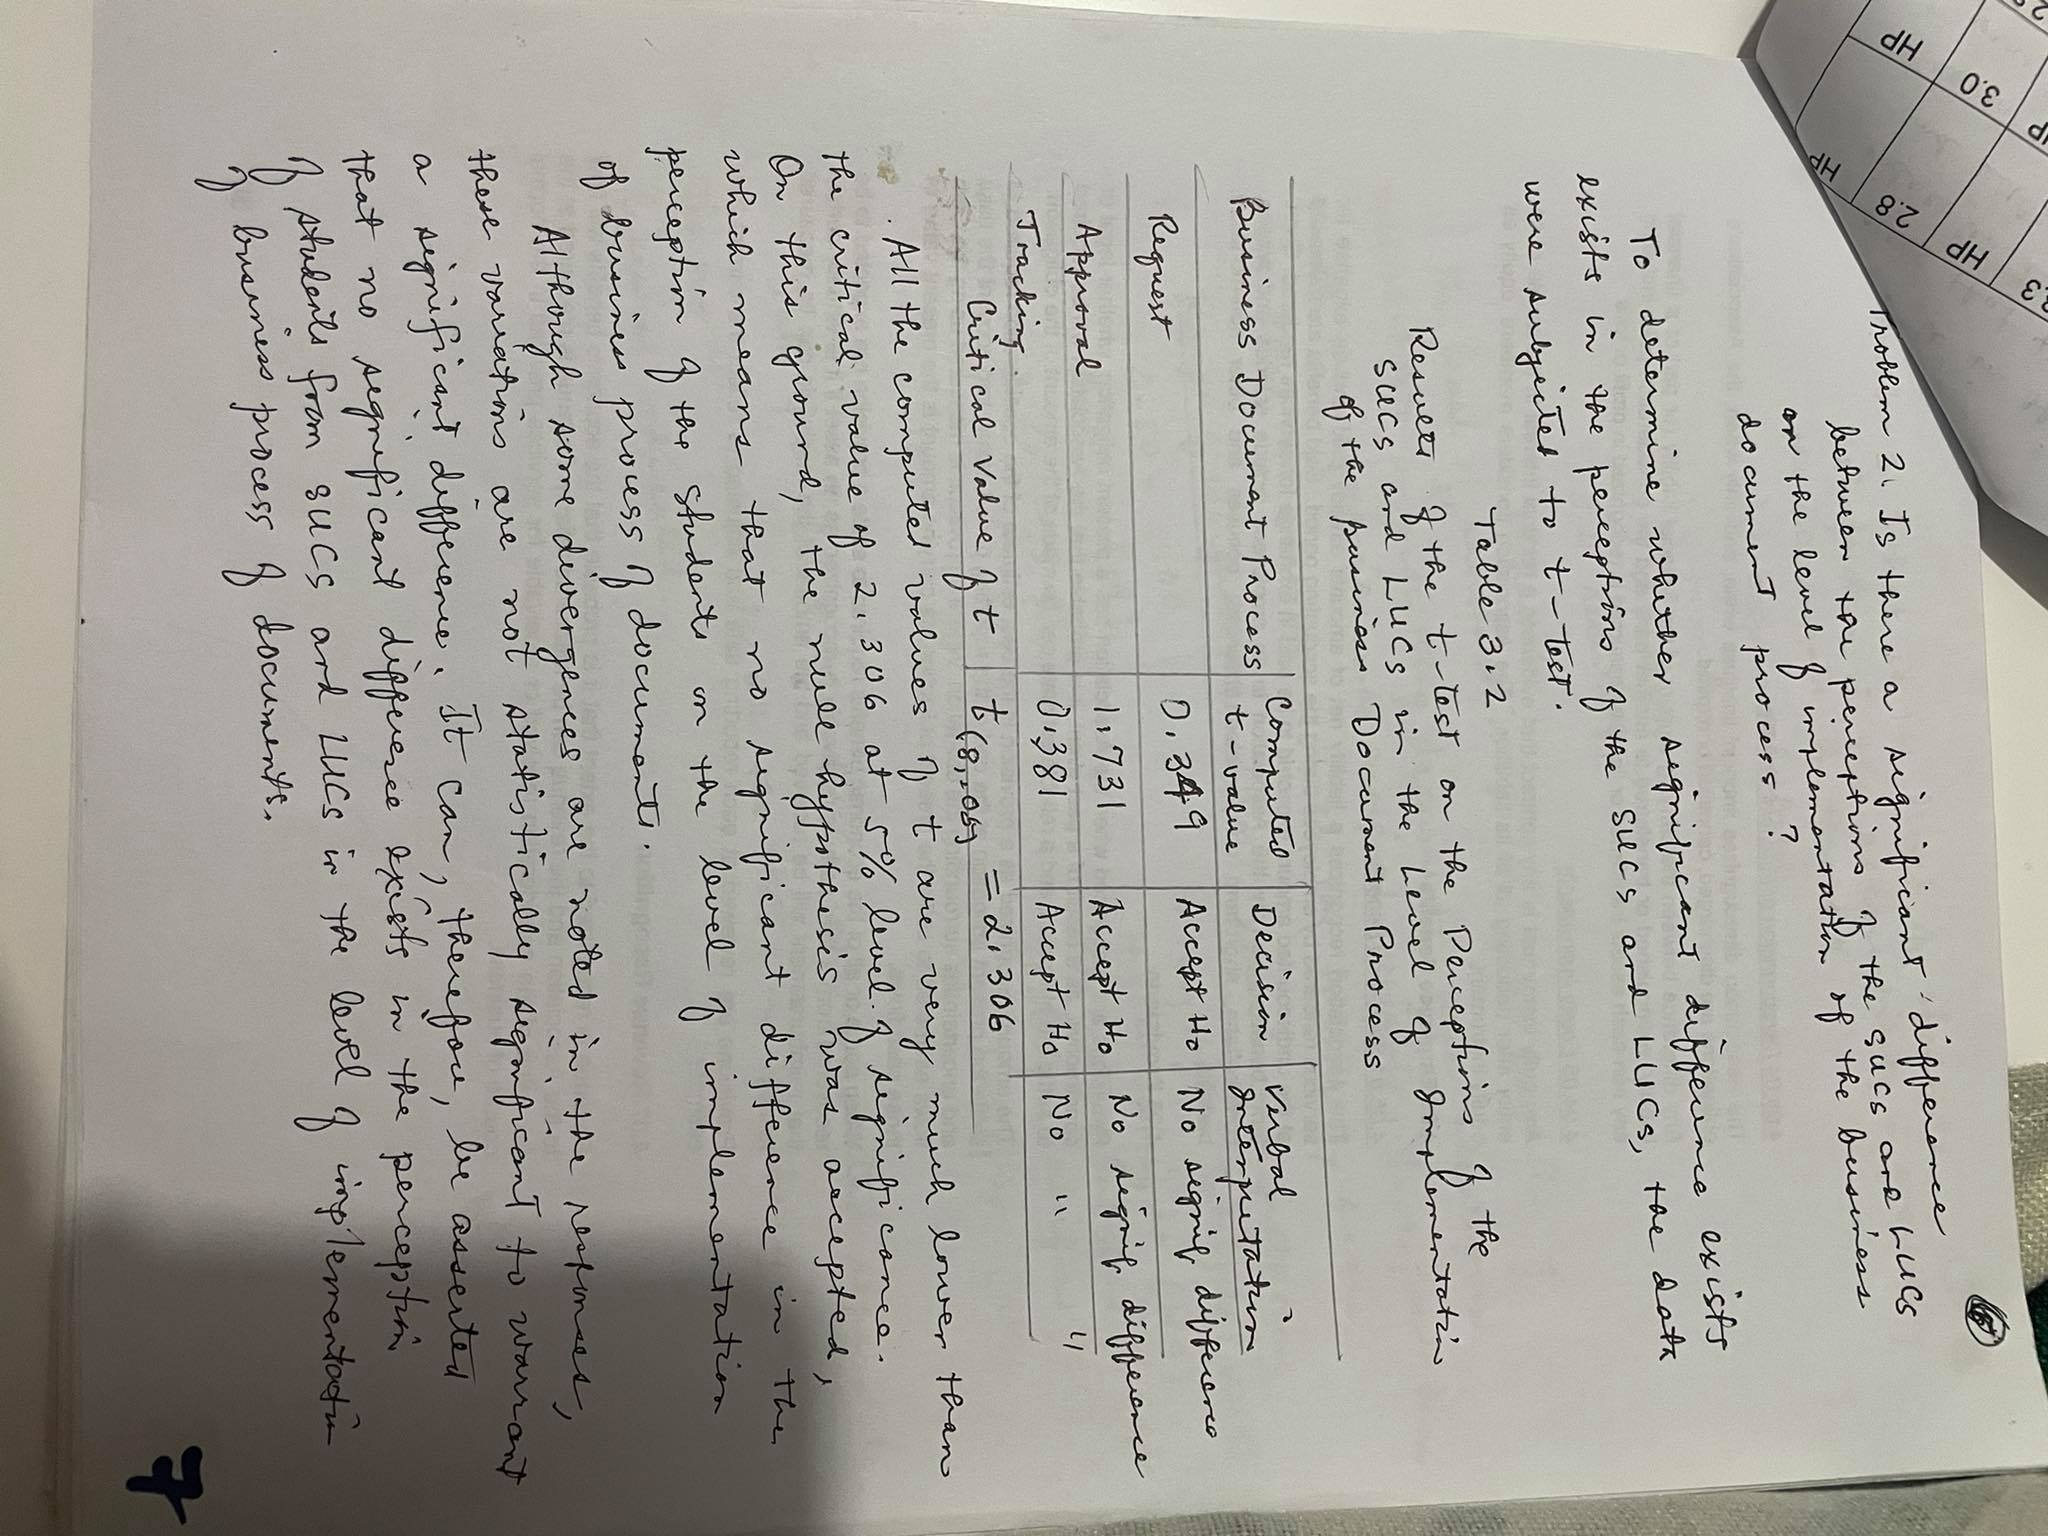 Problem 2. Is there a significant difference
between the perceptions of the SUCs and LUCs
on the level of implementation of the business
document process?
To determine whether significant difference exists
exists in the perceptions of the SUCs and LUCs, the data
were subjected to t-test.
Table 3.2
Results of the t-test on the Perceptions of the
SUCs and LUCs in the Level of Implementation
of the business Document Process
Business Document Process Computed t-value Decision Verbal Interpretation
Request 0.349 Accept Ho No signif. difference
Approval 1.731 Accept Ho No signif. difference
Tracking 0.381 Accept Ho No " "
Critical Value of t t(8,.05) = 2.306
All the computed values of t are very much lower than
the critical value of 2.306 at 5% level of significance.
On this ground, the null hypothesis was accepted,
which means that no significant difference in the
perception of the students on the level of implementation
of business process of documents.
Although some divergences are noted in the responses,
these variations are not statistically significant to warrant
a significant difference. It can, therefore, be asserted
that no significant difference exists in the perception
of students from SUCs and LUCs in the level of implementation
of business process of documents.
7
HP
3.0
HP
2.8
HP